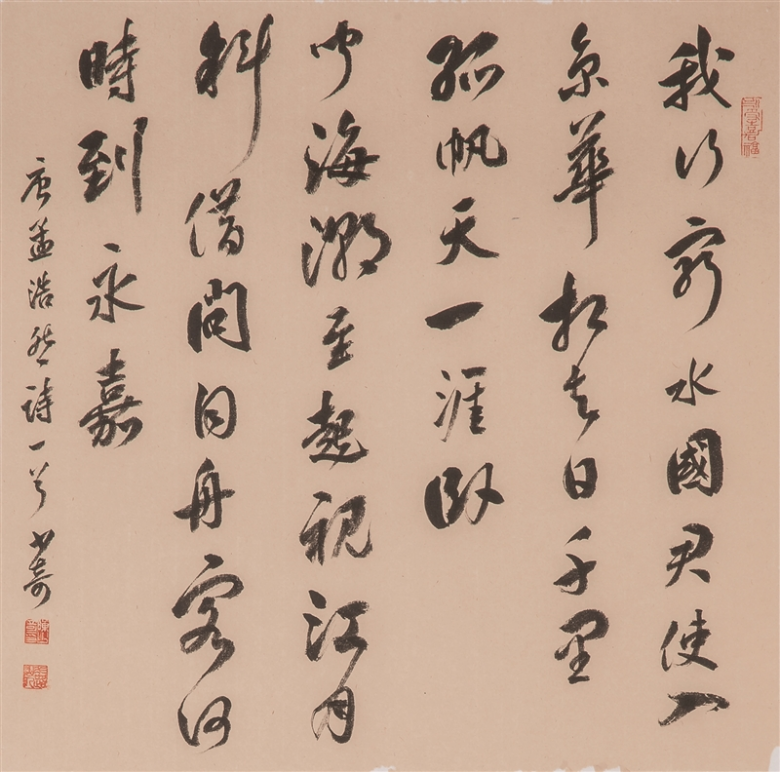 我行窮水國君使入
京華相去日千里
孤帆天一涯臥
聞海潮至起視江月
斜借問同舟客何
時到永嘉
唐孟浩然詩一首